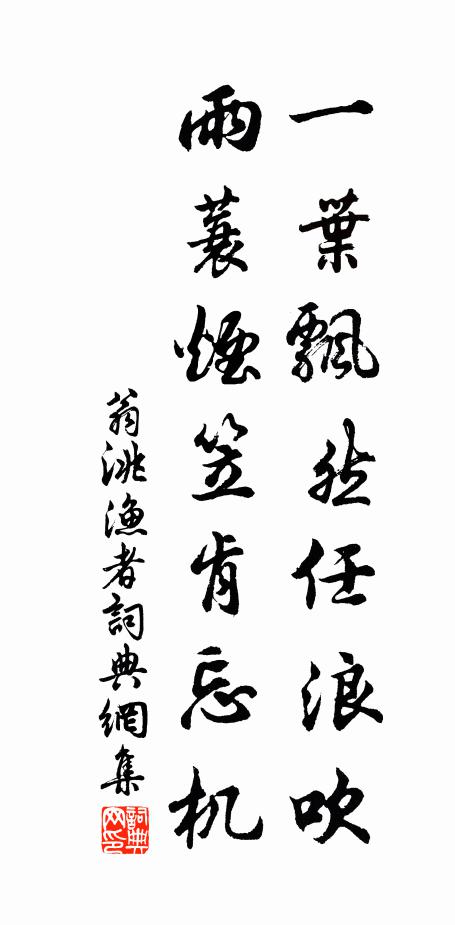 一葉飄然任浪吹
雨蓑煙笠肯忘机
翁洮漁者詞典網集
詞典網印